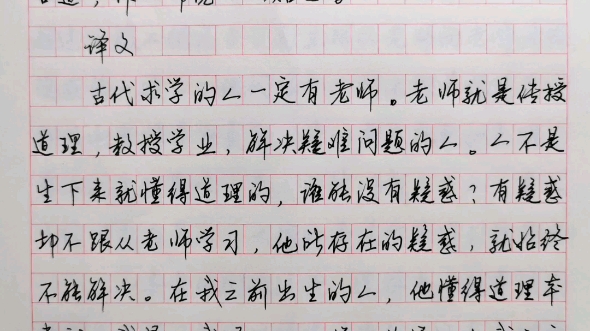 译文
古代求学的人一定有老师。老师就是传授
道理,教授学业,解决疑难问题的人。人不是
生下来就懂得道理的,谁能没有疑惑?有疑惑
却不跟从老师学习,他所存在的疑惑,就始终
不能解决。在我之前出生的人,他懂得道理本